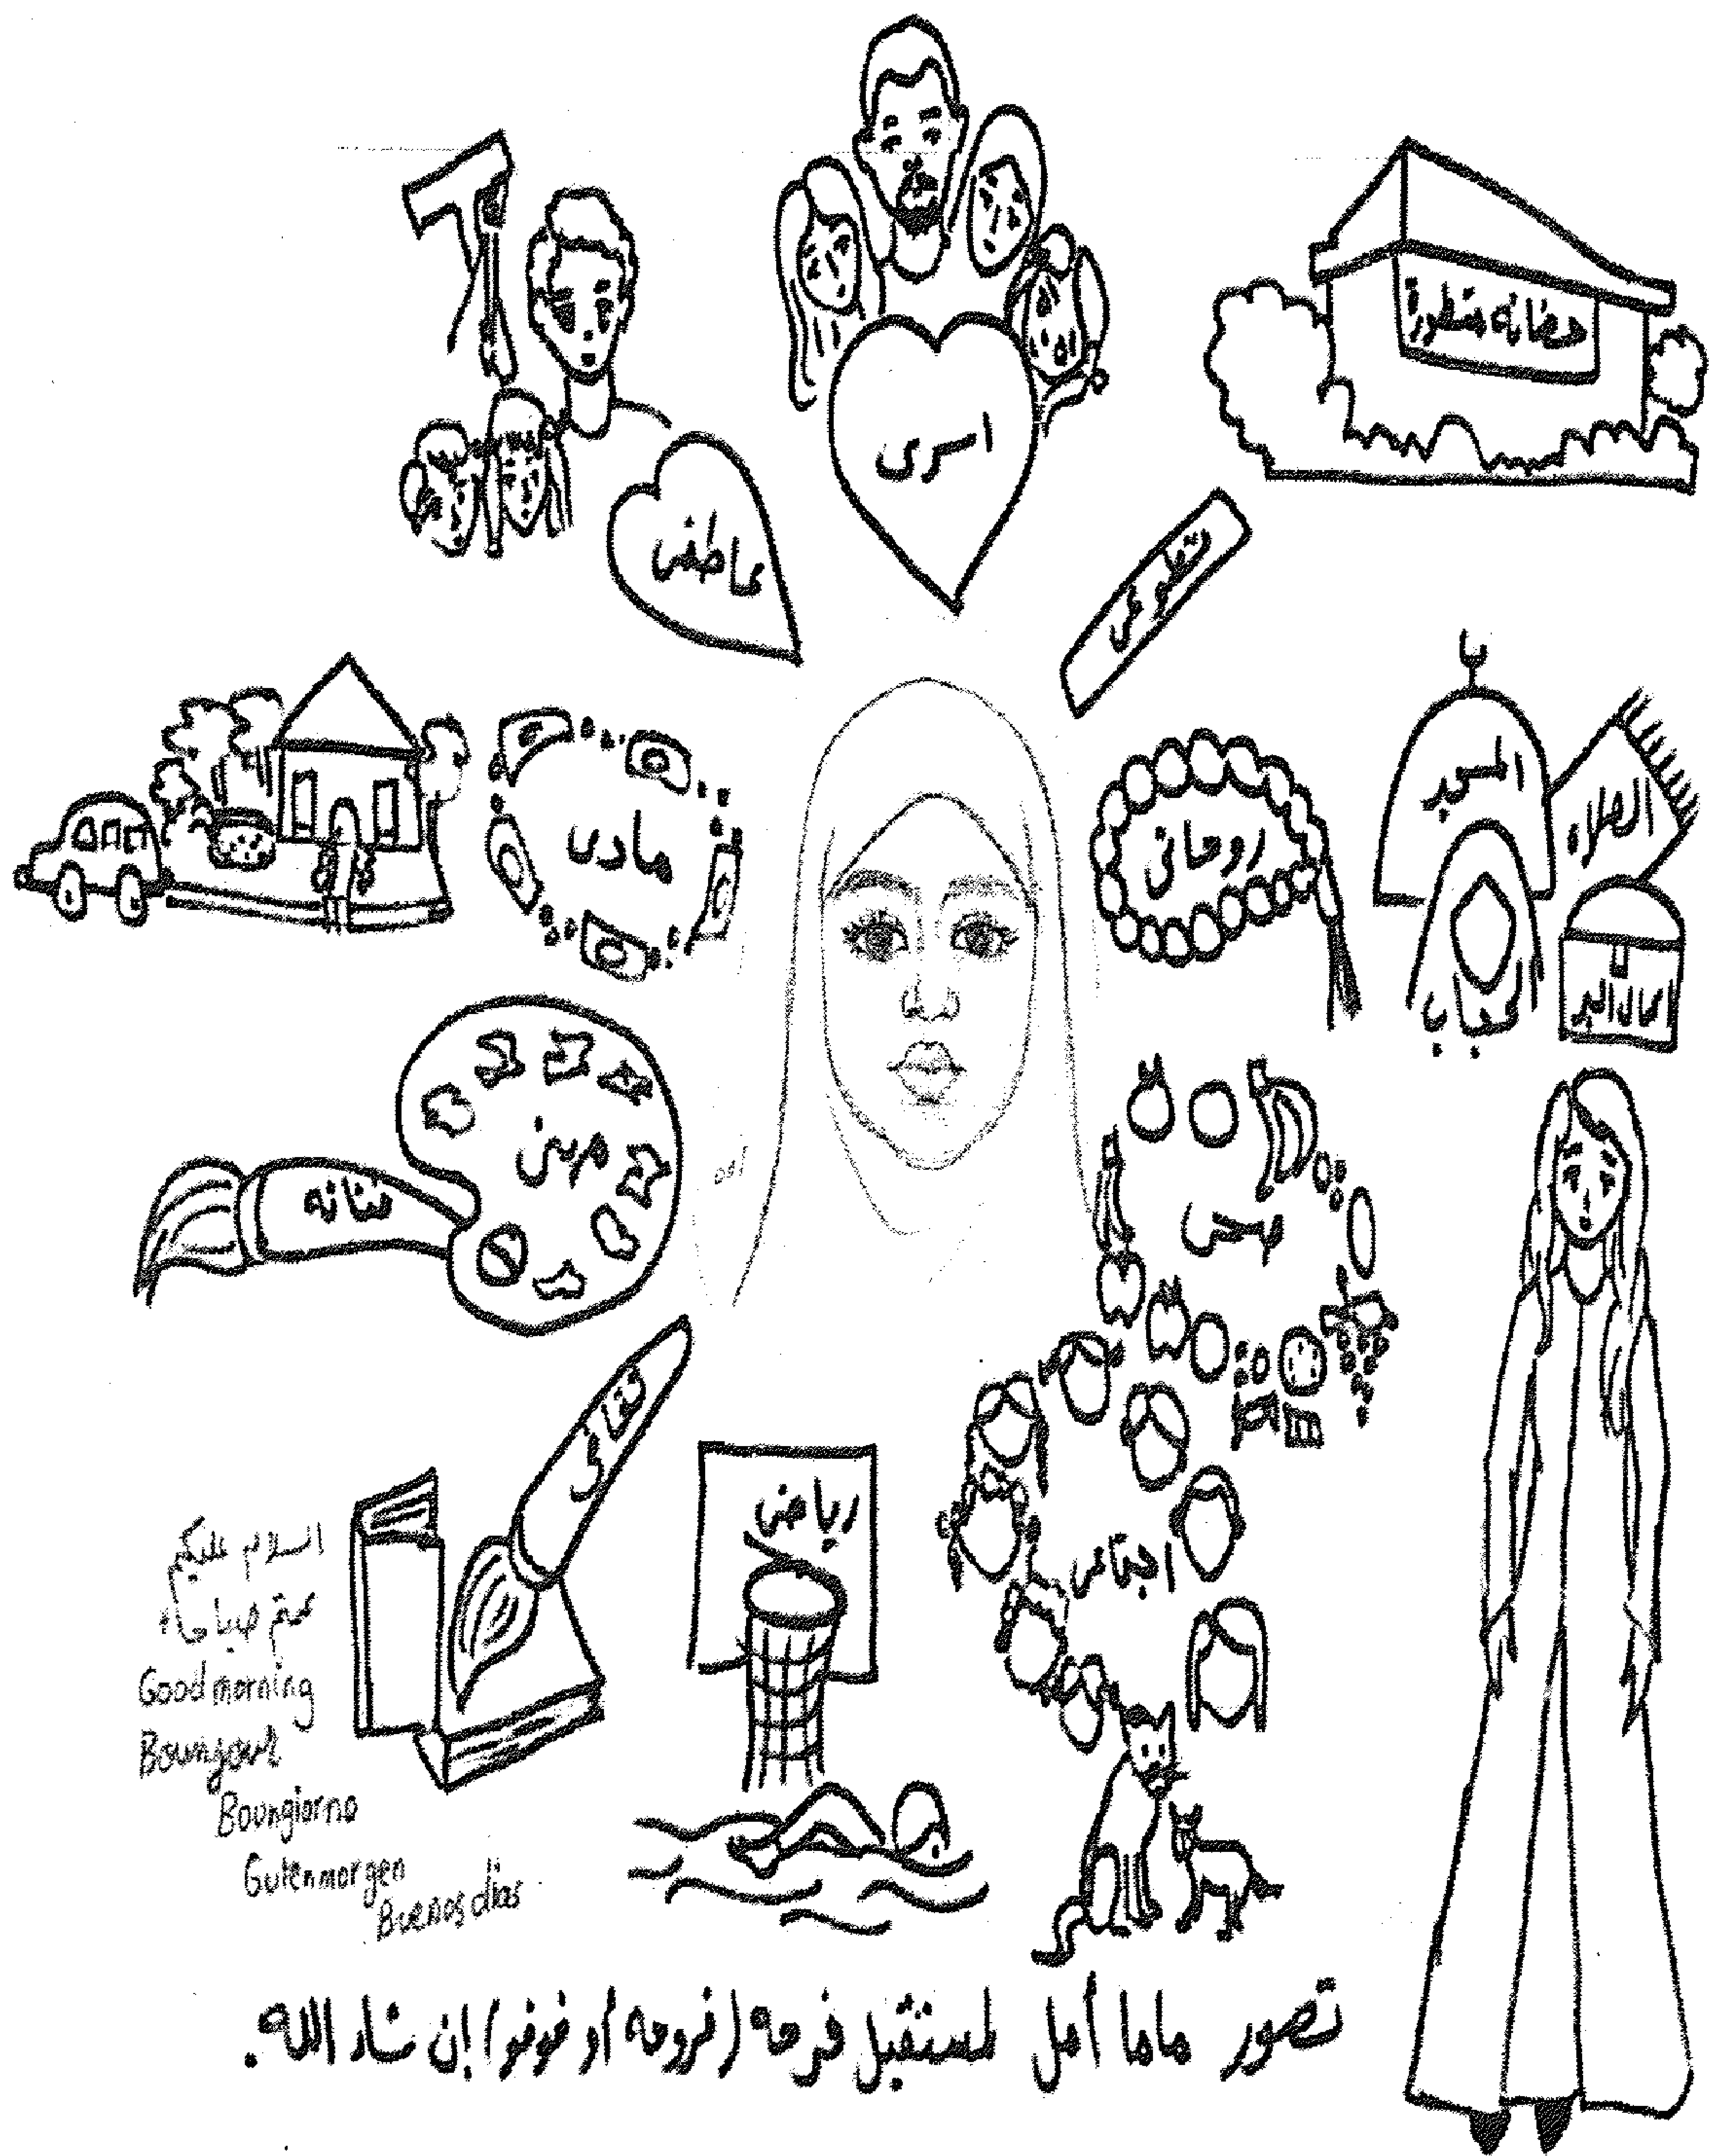 حضانة متطورة
اسرى
عاطفى
تطوعى
مادى
روحانى
المسجد
الصلاه
حجاب
اعمال البر
مهنى
فنانه
جسمى
ثقافى
رياضى
اجتماعى
السلام عليكم
عمتم صباحاً
Good morning
Boungour
Boungiorno
Gutenmorgen
Buenos dias
تصور ماما أمل لمستقبل فرحه (فروحه أو فوفو) إن شاء الله.